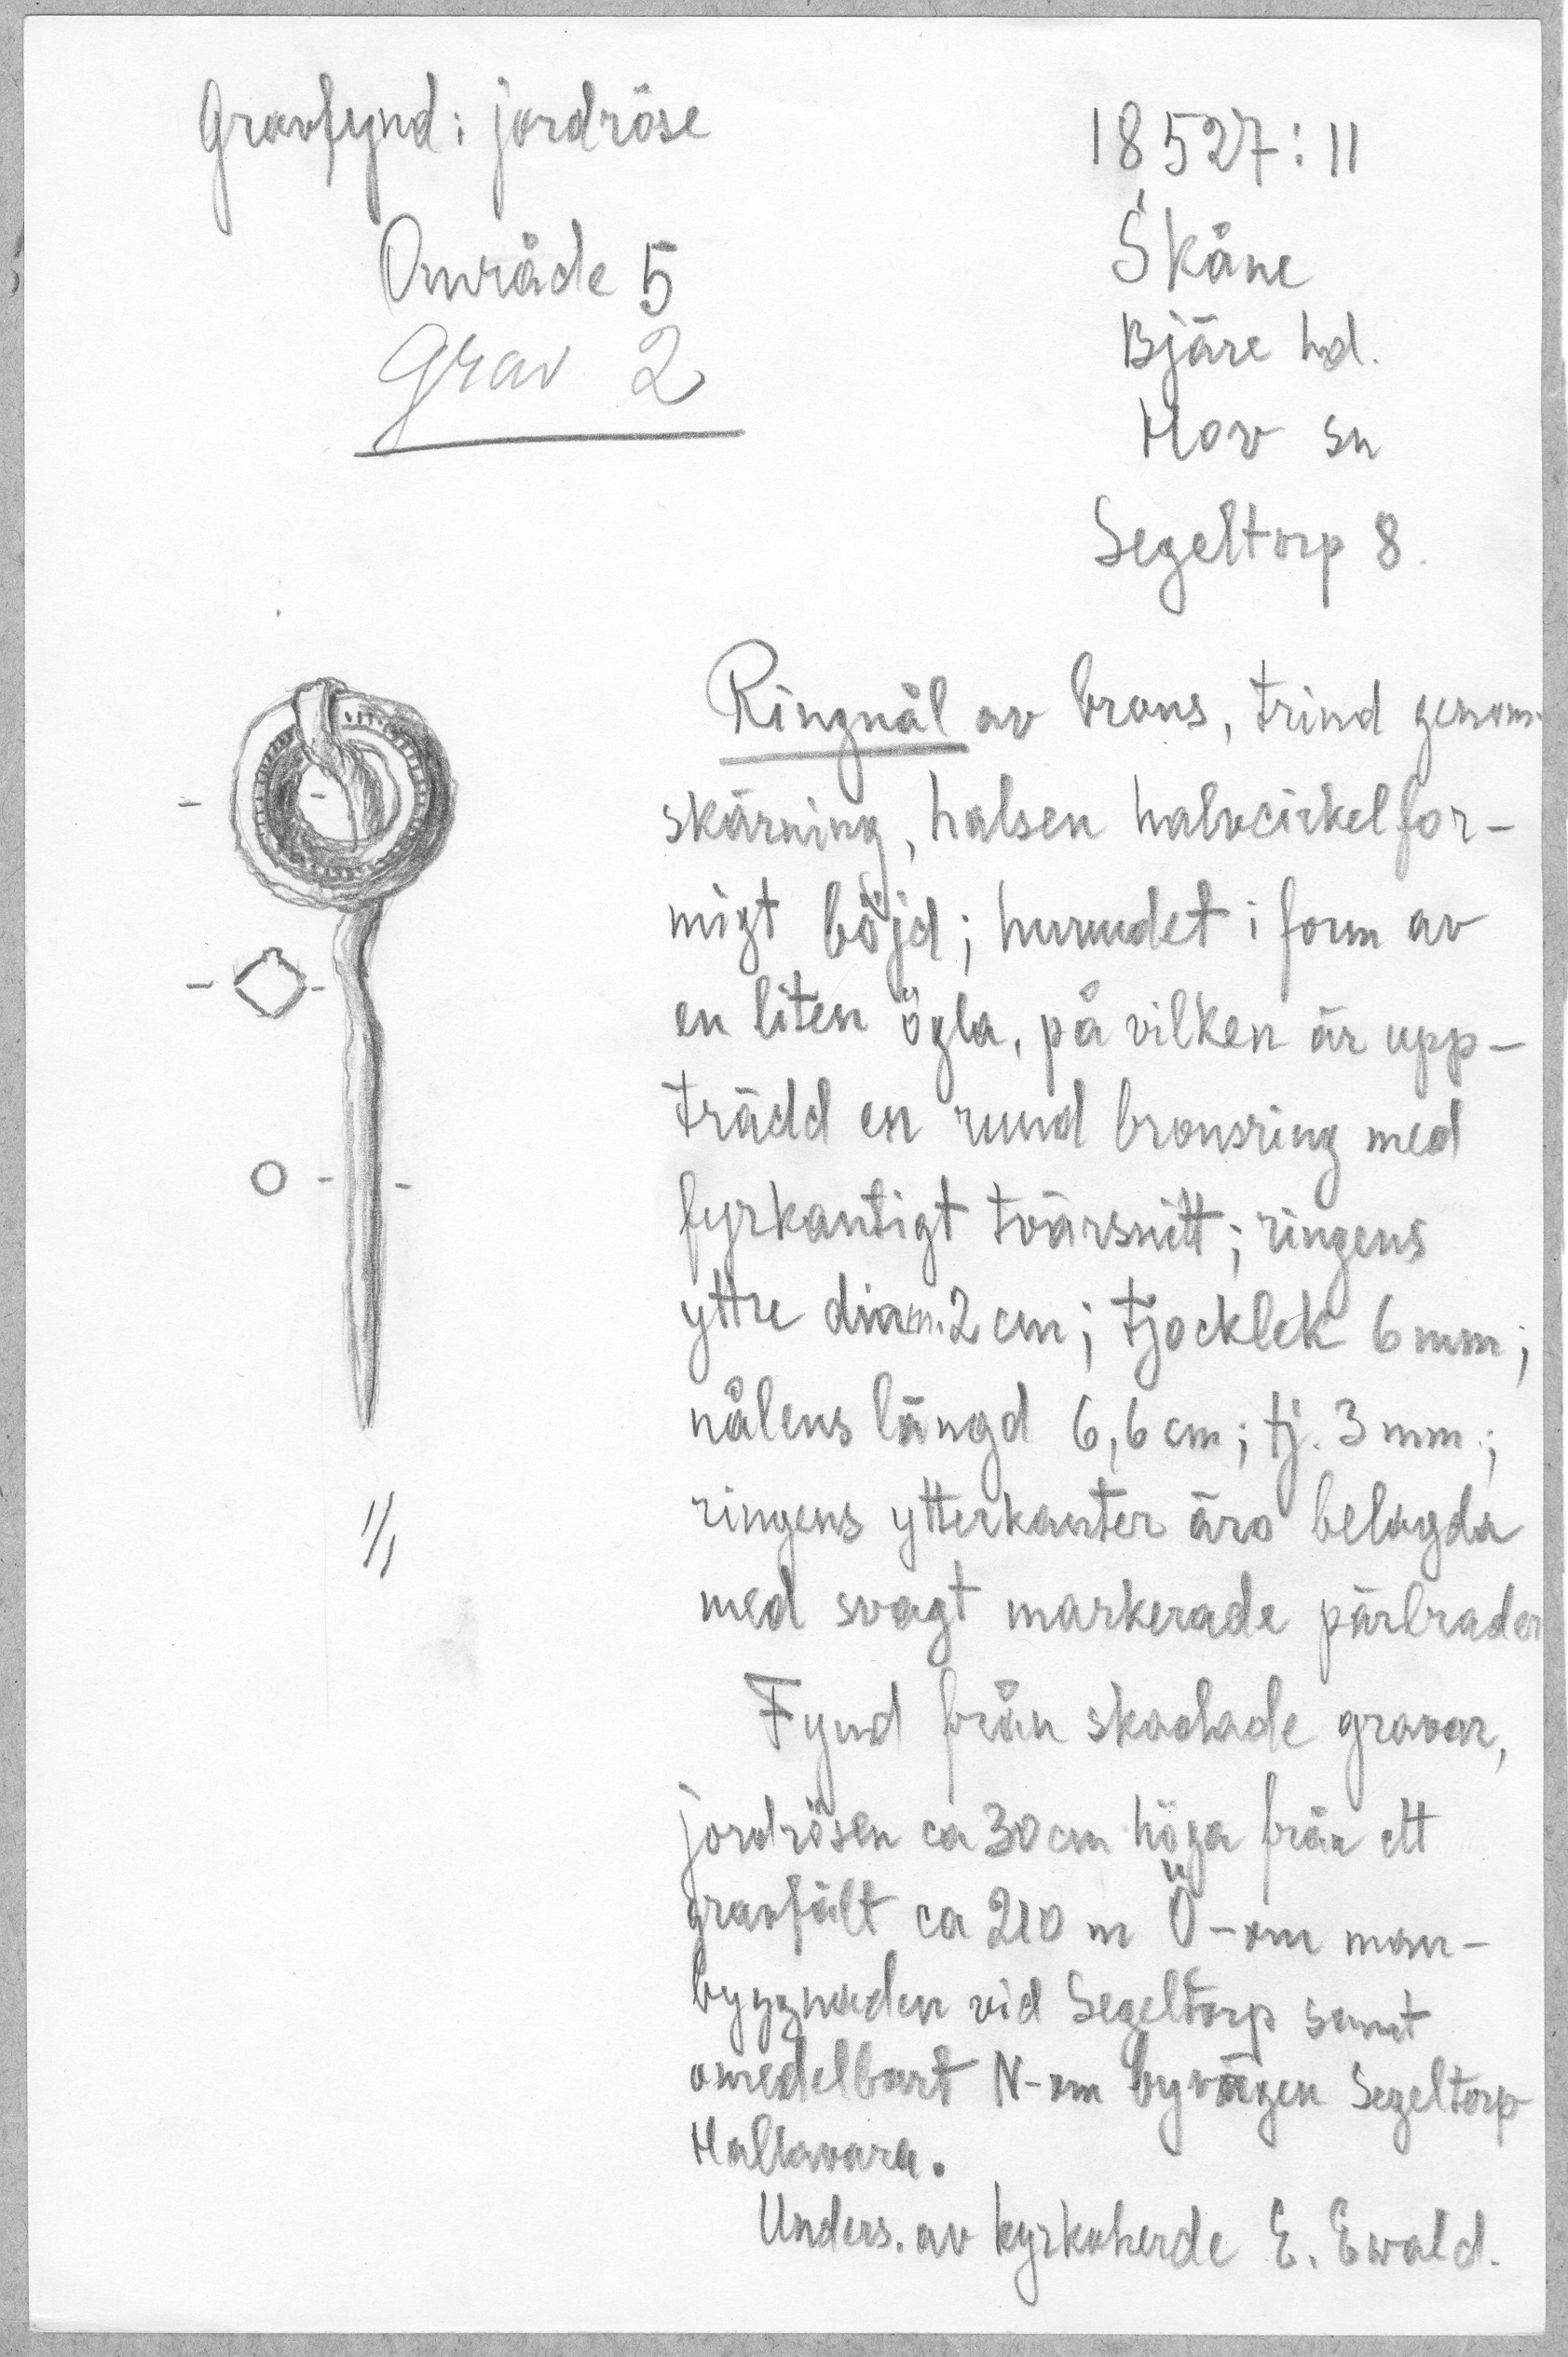 Gravfynd i jordröse
Område 5
Grav 2
18527:11
Skåne
Bjäre hd.
Hov sn
Segeltorp 8.
Ringnål av brons, trind genom-
skärning, halsen halvcirkelfor-
migt böjd; huvudet i form av
en liten ögla, på vilken är upp-
trädd en rund bronsring med
fyrkantigt tvärsnitt; ringens
yttre diam. 2 cm; tjocklek 6 mm;
nålens längd 6,6 cm; tj. 3 mm.;
ringens ytterkanter äro belagda
med svagt markerade pärlrader
Fynd från skadade gravar,
jordrösen ca 30 cm höga från ett
gravfält ca 210 m Ö-om man-
byggnaden vid Segeltorp samt
omedelbart N-om byvägen Segeltorp
Hallavara.
Unders. av kyrkoherde E. Ewald.
1/1